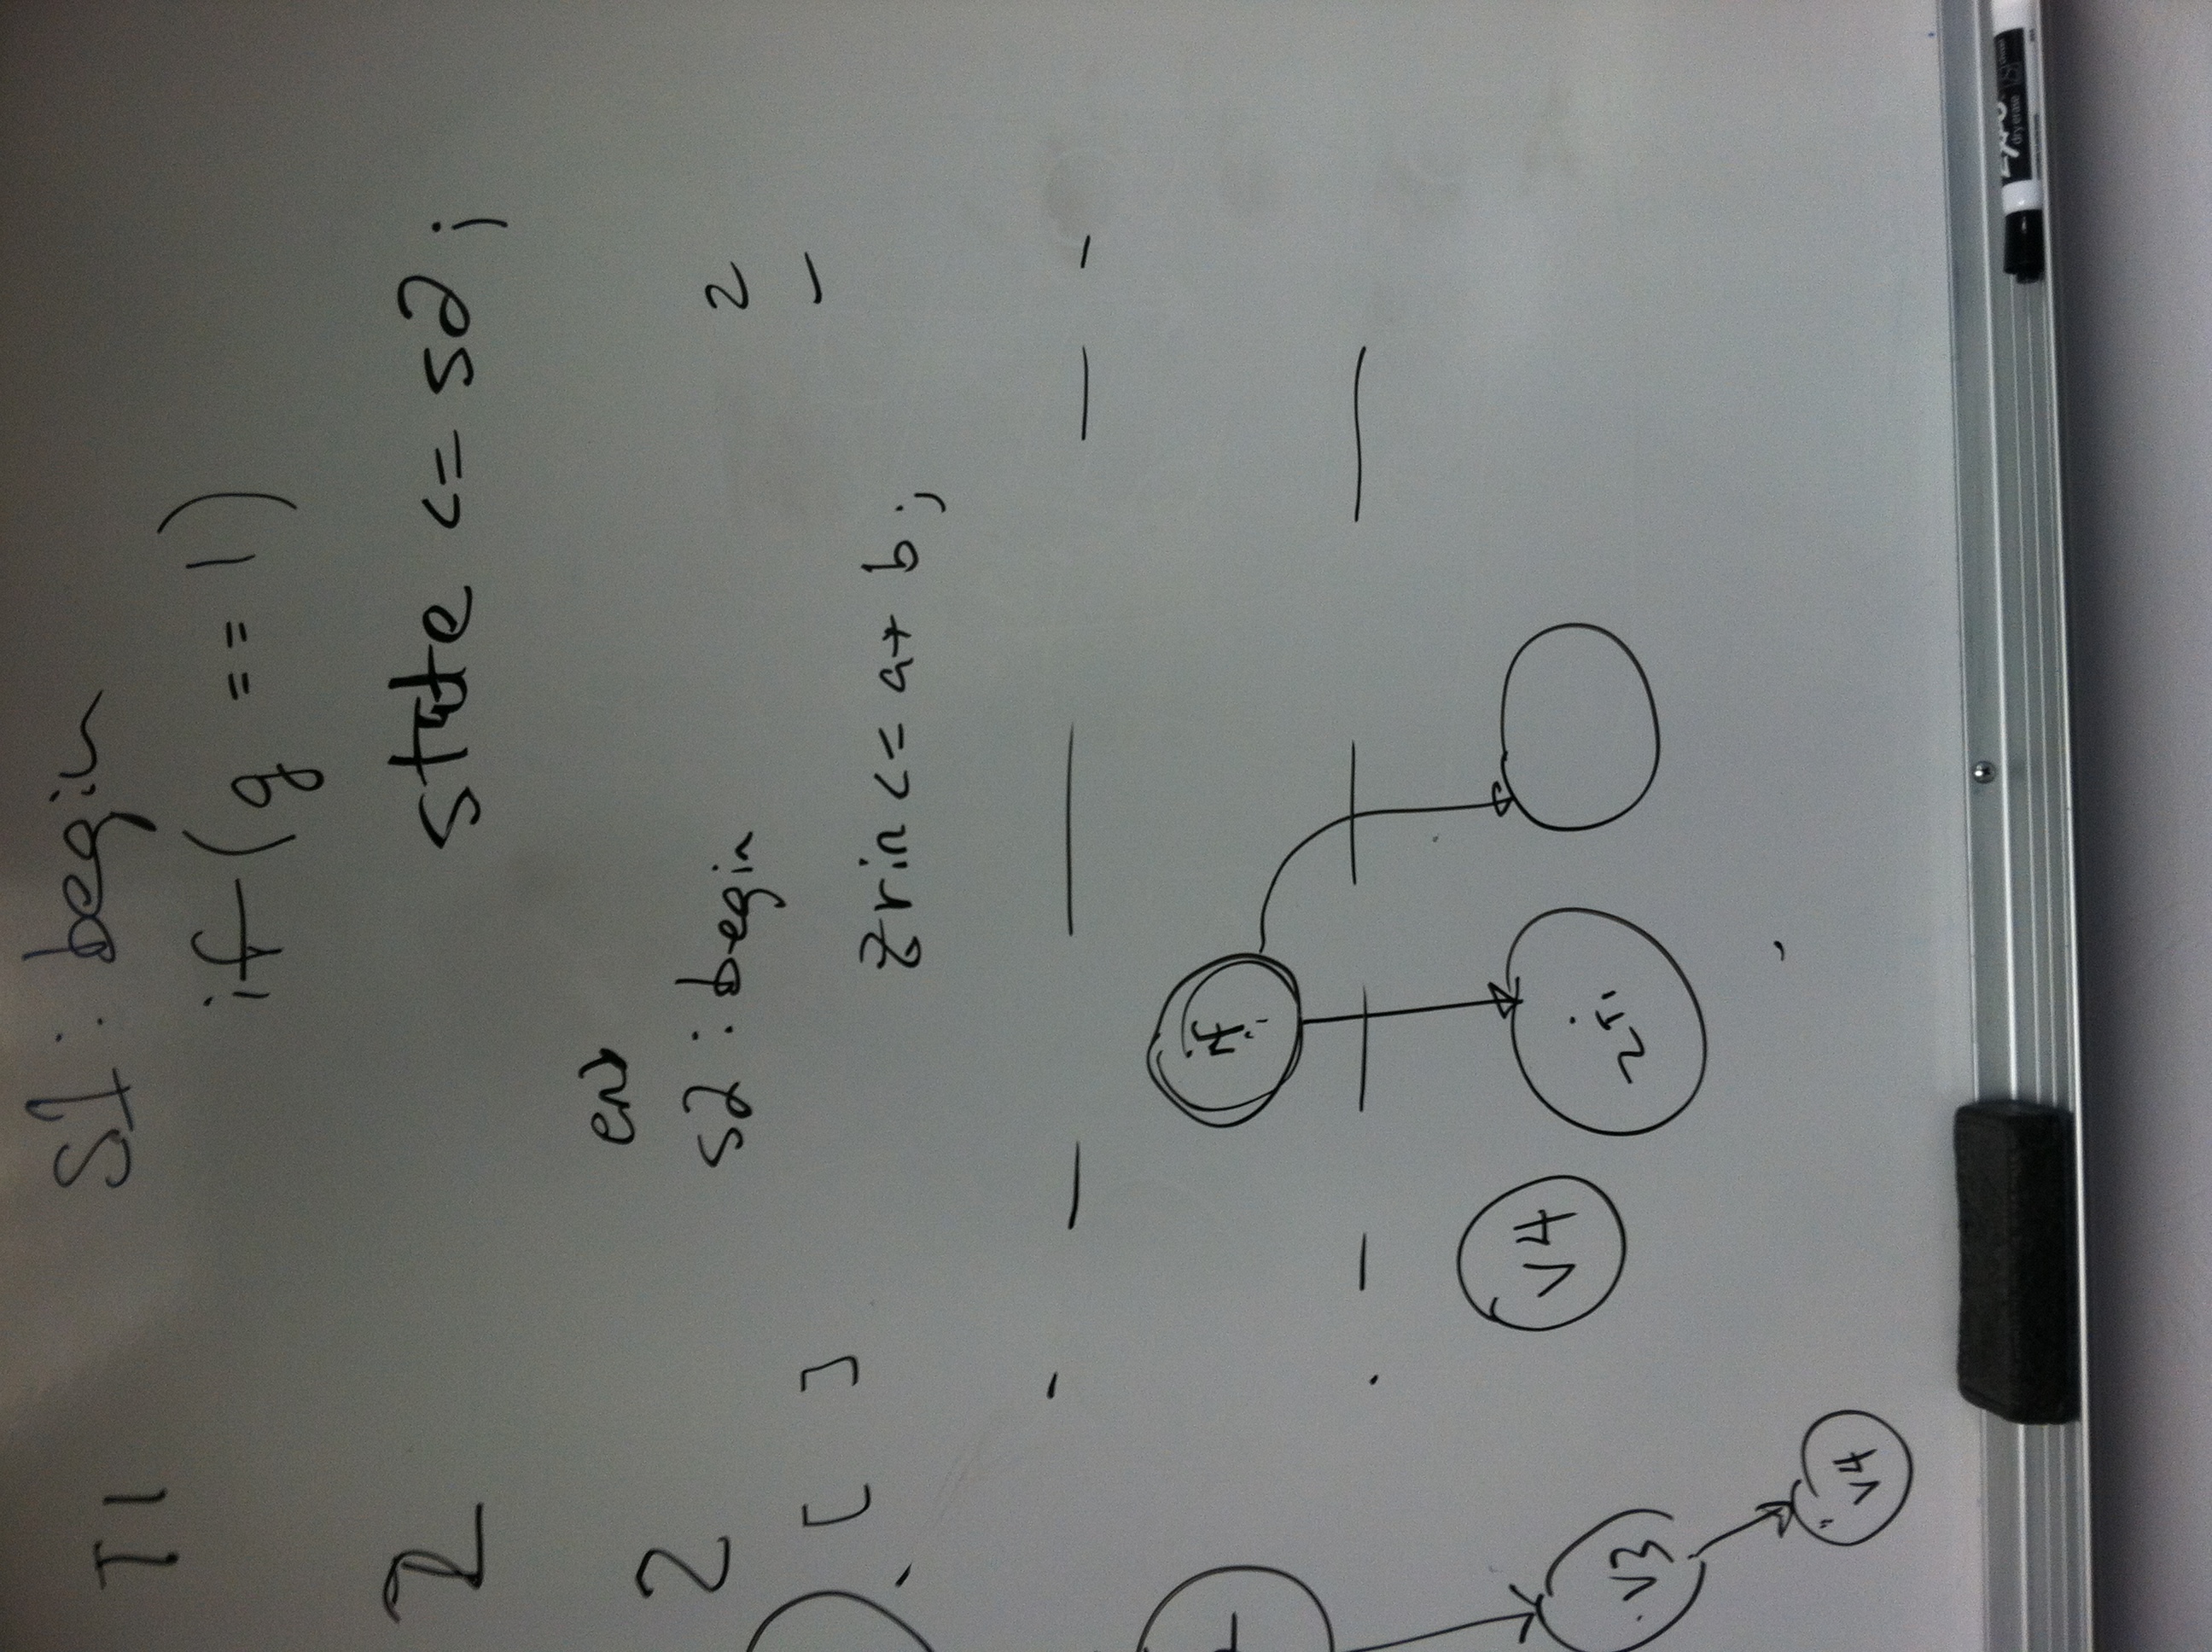 T1
S1 : begin
if (g == 1)
2
state <= s2 ;
end
2
s2 : begin
2
[ ]
zrin <= a + b ;
if
v4
v3
v4
EXPO
dry erase